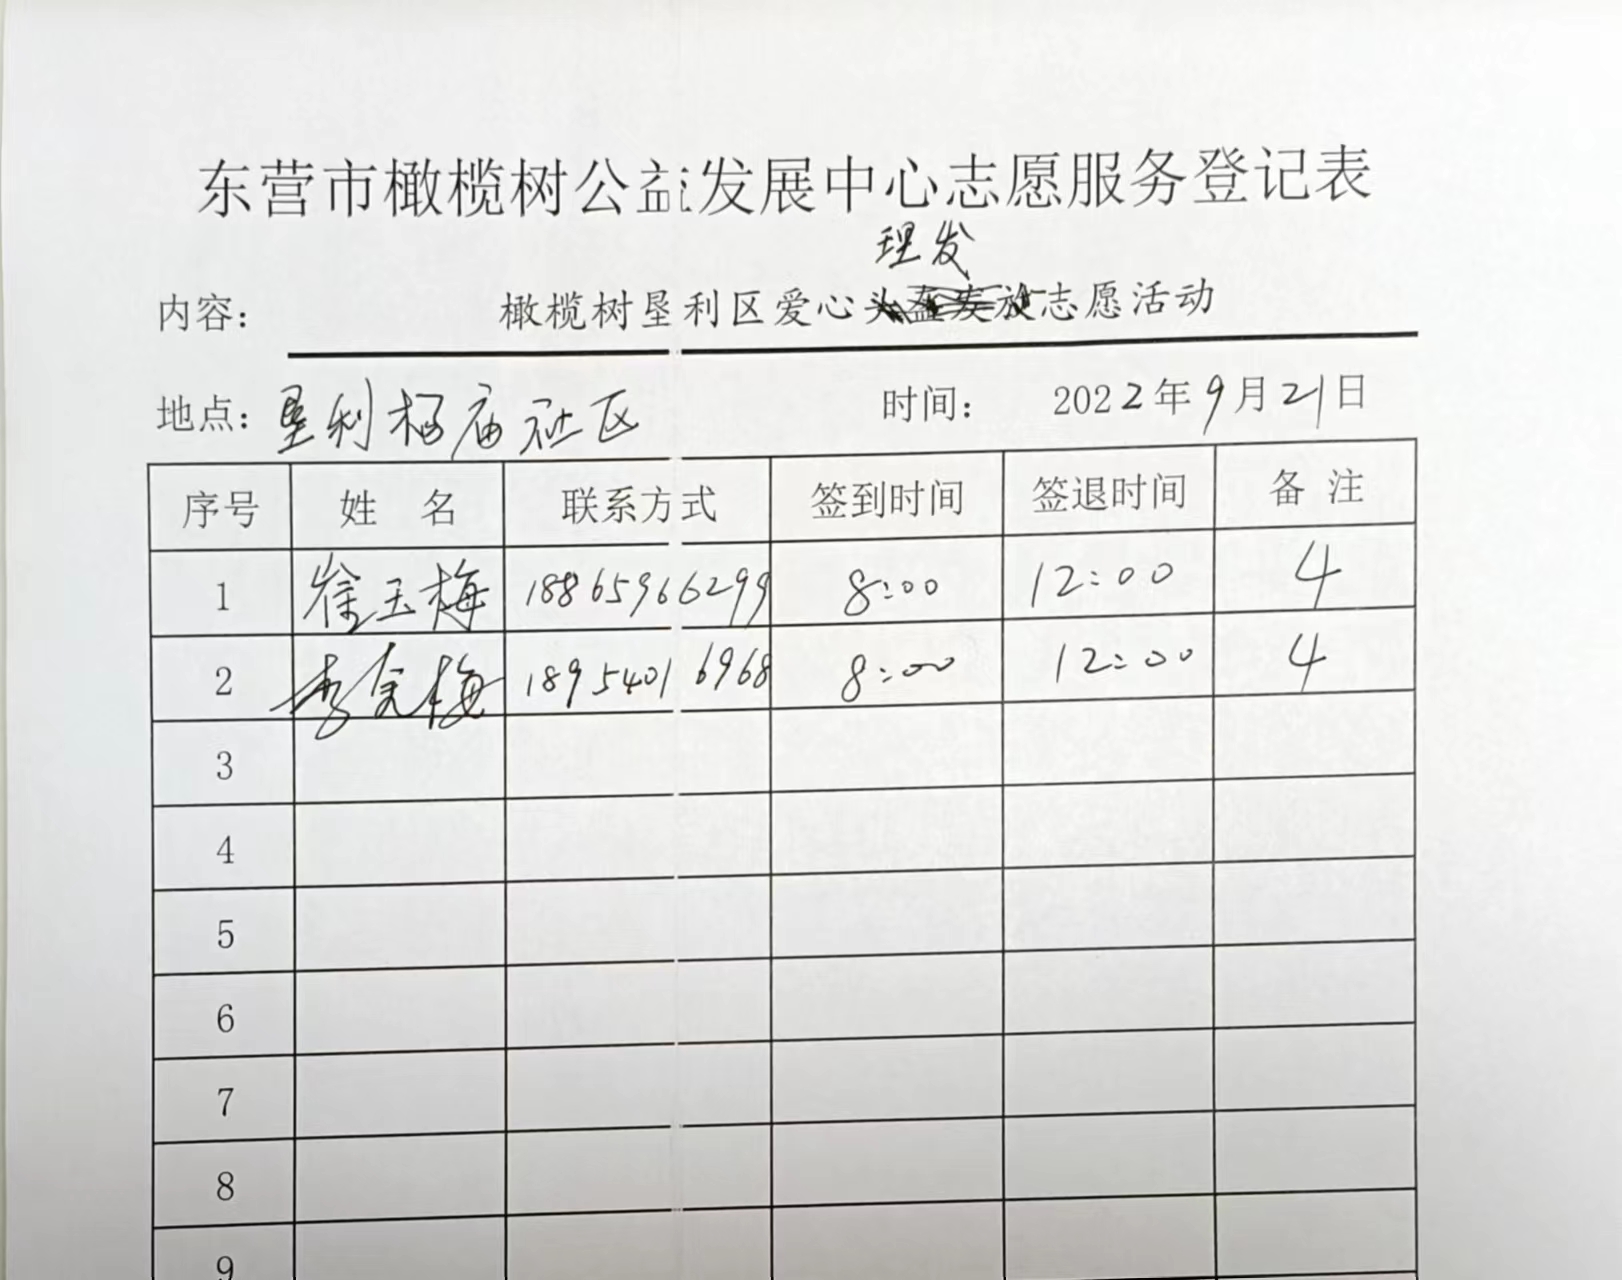 东营市橄榄树公益发展中心志愿服务登记表
理发
内容： 橄榄树垦利区爱心头盔发放志愿活动
地点：垦利杨庙社区 时间： 2022年9月21日
序号 姓 名 联系方式 签到时间 签退时间 备 注
1 崔玉梅 18865966299 8:00 12:00 4
2 李金梅 18954016968 8:00 12:00 4
3
4
5
6
7
8
9